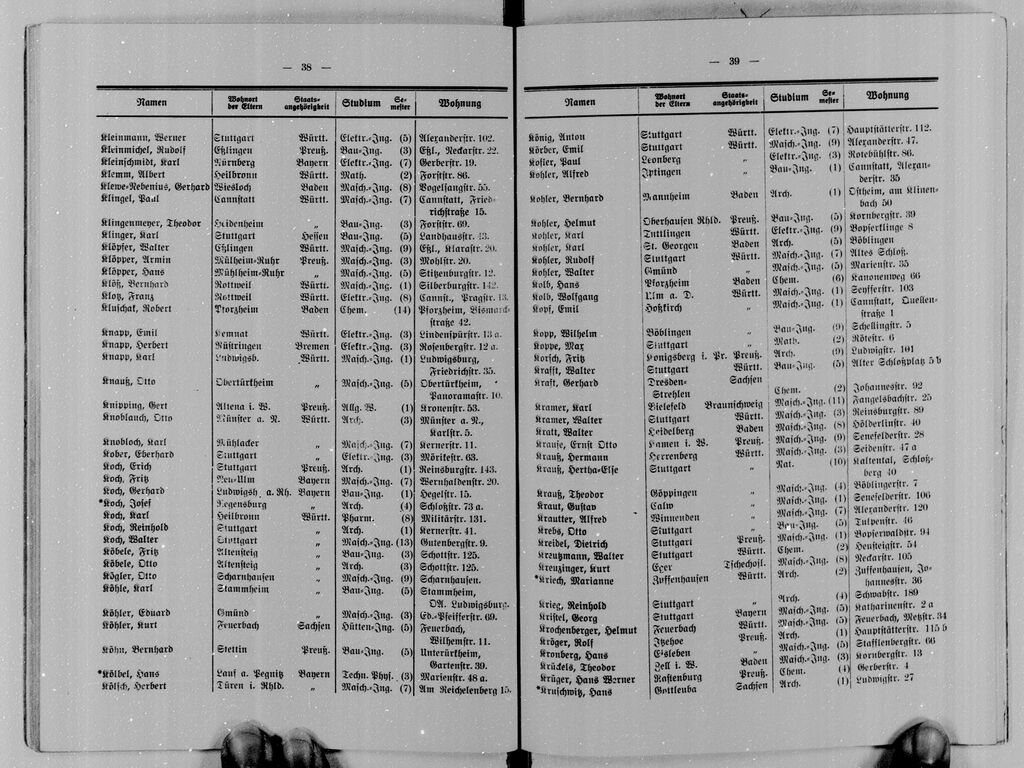 — 38 —
Namen Wohnort der Eltern Staats-angehörigkeit Studium Se-mester Wohnung
Kleinmann, Werner Stuttgart Württ. Elektr.-Ing. (5) Alexanderstr. 102.
Kleinmichel, Rudolf Eßlingen Preuß. Bau-Ing. (3) Eßl., Neckarstr. 22.
Kleinschmidt, Karl Nürnberg Bayern Elektr.-Ing. (7) Gerberstr. 19.
Klemm, Albert Heilbronn Württ. Math. (2) Forststr. 86.
Klewe-Nebenius, Gerhard Wiesloch Baden Masch.-Ing. (8) Vogelsangstr. 55.
Klingel, Paul Cannstatt Württ. Masch.-Ing. (7) Cannstatt, Fried-
richstraße 15.
Klingenmeyer, Theodor Heidenheim „ Bau-Ing. (3) Forststr. 69.
Klinger, Karl Stuttgart Hessen Bau-Ing. (5) Landhausstr. 43.
Klöpfer, Walter Eßlingen Württ. Masch.-Ing. (9) Eßl., Klarastr. 20.
Klöpper, Armin Mülheim-Ruhr Preuß. Masch.-Ing. (5) Mohlstr. 20.
Klöpper, Hans Mühlheim-Ruhr „ Masch.-Ing. (5) Stitzenburgstr. 12.
Klöß, Bernhard Rottweil Württ. Masch.-Ing. (1) Silberburgstr. 142.
Klotz, Franz Rottweil Württ. Elektr.-Ing. (8) Cannst., Pragstr. 13.
Kluschak, Robert Pforzheim Baden Chem. (14) Pforzheim, Bismarck-
straße 42.
Knapp, Emil Kemnat Württ. Elektr.-Ing. (3) Lindenspürstr. 13 a.
Knapp, Herbert Rüstringen Bremen Elektr.-Ing. (3) Rosenbergstr. 12 a.
Knapp, Karl Ludwigsb. Württ. Masch.-Ing. (1) Ludwigsburg,
Friedrichstr. 35.
Knauß, Otto Obertürkheim „ Masch.-Ing. (5) Obertürkheim,
Panoramastr. 10.
Knipping, Gert Altena i. W. Preuß. Allg. W. (1) Kronenstr. 53.
Knoblauch, Otto Münster a. N. Württ. Arch. (3) Münster a. N.,
Karlstr. 5.
Knobloch, Karl Mühlacker „ Masch.-Ing. (7) Kernerstr. 11.
Kober, Eberhard Stuttgart „ Elektr.-Ing. (3) Mörikestr. 63.
Koch, Erich Stuttgart Preuß. Arch. (1) Reinsburgstr. 143.
Koch, Fritz Neu-Ulm Bayern Masch.-Ing. (7) Wernhaldenstr. 20.
Koch, Gerhard Ludwigsh. a. Rh. Bayern Bau-Ing. (1) Hegelstr. 15.
*Koch, Josef Regensburg „ Arch. (4) Schloßstr. 73 a.
Koch, Karl Heilbronn Württ. Pharm. (8) Militärstr. 131.
Koch, Reinhold Stuttgart „ Arch. (1) Kernerstr. 41.
Koch, Walter Stuttgart „ Masch.-Ing. (13) Gutenbergstr. 9.
Köbele, Fritz Altensteig „ Bau-Ing. (3) Schottstr. 125.
Köbele, Otto Altensteig „ Arch. (3) Schottstr. 125.
Kögler, Otto Scharnhausen „ Masch.-Ing. (9) Scharnhausen.
Köhle, Karl Stammheim „ Bau-Ing. (5) Stammheim,
OA. Ludwigsburg.
Köhler, Eduard Gmünd „ Masch.-Ing. (3) Ed.-Pfeifferstr. 69.
Köhler, Kurt Feuerbach Sachsen Hütten-Ing. (5) Feuerbach,
Wilhemstr. 11.
Köhn, Bernhard Stettin Preuß. Bau-Ing. (5) Untertürkheim,
Gartenstr. 39.
*Kölbel, Hans Lauf a. Pegnitz Bayern Techn. Phys. (3) Marienstr. 48 a.
Kölsch, Herbert Düren i. Rhld. „ Masch.-Ing. (7) Am Reichelenberg 15.
— 39 —
Namen Wohnort der Eltern Staats-angehörigkeit Studium Se-mester Wohnung
König, Anton Stuttgart Württ. Elektr.-Ing. (7) Hauptstätterstr. 112.
Körber, Emil Stuttgart Württ. Masch.-Ing. (9) Alexanderstr. 47.
Kofler, Paul Leonberg „ Elektr.-Ing. (3) Rotebühlstr. 86.
Kohler, Alfred Iptingen „ Bau-Ing. (1) Cannstatt, Alexan-
derstr. 35
Kohler, Bernhard Mannheim Baden Arch. (1) Ostheim, am Klinen-
bach 50
Kohler, Helmut Oberhausen Rhld. Preuß. Bau-Ing. (5) Kornbergstr. 39
Kohler, Karl Tuttlingen Württ. Elektr.-Ing. (9) Bopserklinge 8
Kohler, Karl St. Georgen Baden Arch. (5) Böblingen
Kohler, Rudolf Stuttgart Württ. Masch.-Ing. (7) Altes Schloß.
Kohler, Walter Gmünd „ Masch.-Ing. (5) Marienstr. 35
Kolb, Hans Pforzheim Baden Chem. (6) Kanonenweg 66
Kolb, Wolfgang Ulm a. D. Württ. Masch.-Ing. (1) Seyfferstr. 103
Kopf, Emil Hoßkirch „ Masch.-Ing. (1) Cannstatt, Quellen-
straße 1
Kopp, Wilhelm Böblingen „ Bau-Ing. (9) Schellingstr. 5
Koppe, Max Stuttgart „ Math. (2) Rötestr. 6
Korsch, Fritz Königsberg i. Pr. Preuß. Arch. (9) Ludwigstr. 101
Krafft, Walter Stuttgart Württ. Bau-Ing. (5) Alter Schloßplatz 5 b
Kraft, Gerhard Dresden- Sachsen
Strehlen Chem. (2) Johannesstr. 92
Kramer, Karl Bielefeld Braunschweig Masch.-Ing. (11) Fangelsbachstr. 25
Kramer, Walter Stuttgart Württ. Masch.-Ing. (3) Reinsburgstr. 89
Kratt, Walter Heidelberg Baden Masch.-Ing. (8) Hölderlinstr. 40
Krause, Ernst Otto Kamen i. W. Preuß. Masch.-Ing. (9) Senefelderstr. 28
Krauß, Hermann Herrenberg Württ. Masch.-Ing. (3) Seidenstr. 47 a
Krauß, Hertha-Else Stuttgart „ Nat. (10) Kaltental, Schloß-
berg 40
Krauß, Theodor Göppingen „ Masch.-Ing. (4) Böblingerstr. 7
Kraut, Gustav Calw „ Masch.-Ing. (5) Senefelderstr. 106
Krautter, Alfred Winnenden „ Masch.-Ing. (7) Alexanderstr. 120
Krebs, Otto Stuttgart „ Bau-Ing. (5) Tulpenstr. 46
Kreidel, Dietrich Stuttgart Preuß. Masch.-Ing. (1) Bopserwaldstr. 94
Kreutzmann, Walter Stuttgart Württ. Chem. (2) Heusteigstr. 54
Kreuzinger, Kurt Eger Tschechosl. Masch.-Ing. (8) Neckarstr. 105
*Kriech, Marianne Zuffenhausen Württ. Arch. (2) Zuffenhausen, Jo-
hannesstr. 36
Krieg, Reinhold Stuttgart „ Arch. (4) Schwabstr. 189
Kristel, Georg Stuttgart Bayern Masch.-Ing. (5) Katharinenstr. 2 a
Krochenberger, Helmut Feuerbach Württ. Masch.-Ing. (5) Feuerbach, Metzstr. 34
Kröger, Rolf Itzehoe Preuß. Arch. (1) Hauptstätterstr. 115 b
Kronberg, Hans Eisleben „ Masch.-Ing. (5) Stafflenbergstr. 66
Krückels, Theodor Zell i. W. Baden Masch.-Ing. (3) Kornbergstr. 13
Krüger, Hans Werner Rastenburg Preuß. Chem. (4) Gerberstr. 4
*Kruschwitz, Hans Gottleuba Sachsen Arch. (1) Ludwigstr. 27